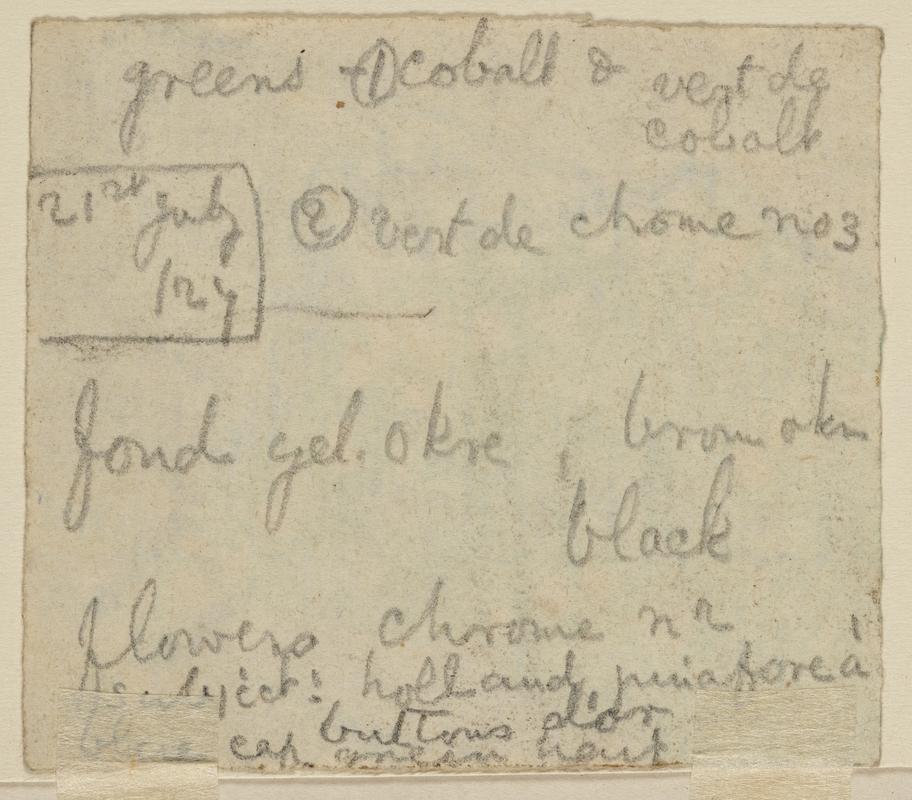 greens ① cobalt & vert de
cobalt
21st July
127
② vert de chome no 3
fond yel. okre , brown okre
black
flowers chrome n 2
subject: holland pinafore à
buttons d'or
blue cap